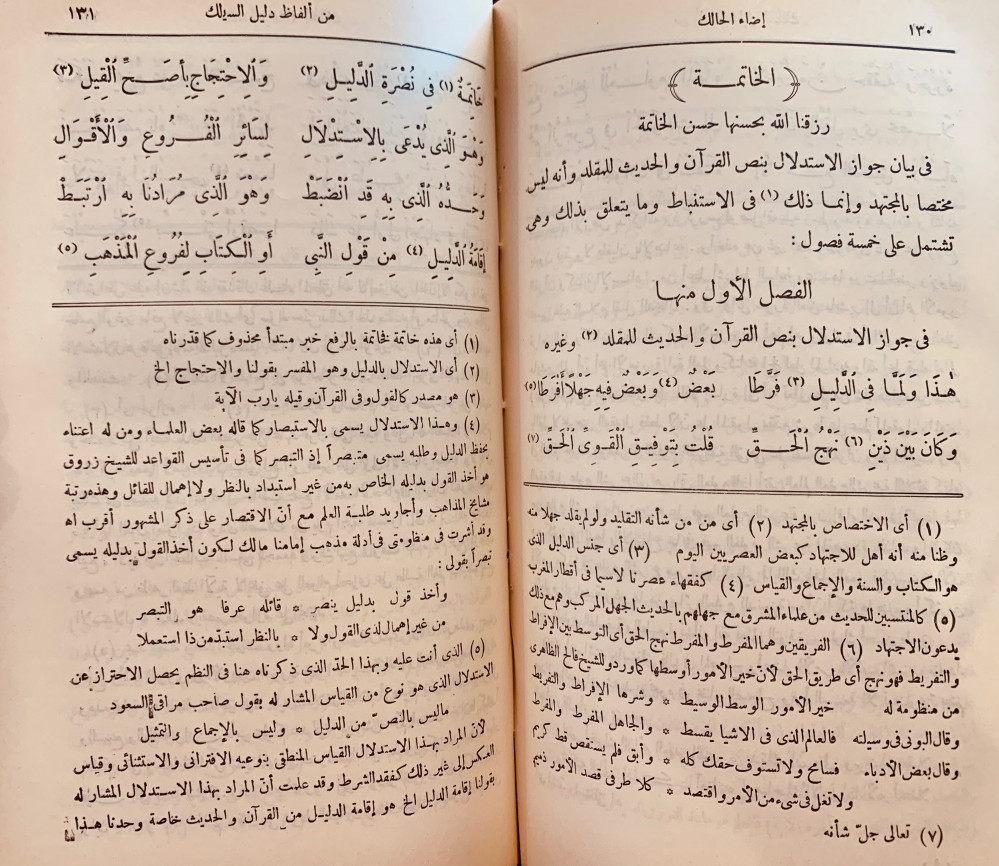 إضاء الحالك ١٣٠
﴿ الخاتمـــة ﴾
رزقنا الله بحسنها حسن الخاتمة
فى بيان جواز الاستدلال بنص القرآن والحديث للمقلد وأنه ليس
مختصا بالمجتهد وإنما ذلك (١) فى الاستنباط وما يتعلق بذلك وهى
تشتمل على خمسة فصول :
الفصل الأول منها
فى جواز الاستدلال بنص القرآن والحديث للمقلد (٢) وغيره
هٰذَا وَلَمَّا فِى الدَّلِيلِ (٣) فَرَّطَا بَعْضٌ (٤) وَبَعْضٌ فِيهِ جَهْلًا أَفْرَطَا (٥)
وَكَانَ بَيْنَ ذَيْنِ (٦) نَهْجُ الْحَــقِّ قُلْتُ بِتَوْفِيقِ الْقَوِىِّ الْحَقِّ (٧)
(١) أى الاختصاص بالمجتهد (٢) أى من من شأنه التقليد ولو لم يقلد جهلا منه
وظنا منه أنه أهل للاجتهاد كبعض العصريين اليوم (٣) أى جنس الدليل الذى
هو الكتاب والسنة والإجماع والقياس (٤) كفقهاء عصرنا لاسيما فى أقطار المغرب
(٥) كالمنتسبين للحديث من علماء المشرق مع جهلهم بالحديث الجهل المركب وهم مع ذلك
يدعون الاجتهاد (٦) الفريقين وهما المفرط والمفرط نهج الحق أى التوسط بين الإفراط
والتفريط فهو نهج أى طريق الحق لأنّ خير الأمور أوسطها كما ورد وللشيخ فالح الظاهرى
من منظومة له خير الأمور الوسط الوسيط * وشرها الإفراط والتفريط
وقال البونى فى وسيلته فالعالم الذى فى الاشيا يقسط * والجاهل المفرط والمفرط
وقال بعض الأدباء فسامح ولا تستوف حقك كله * وأبق فلم يستقص قط كريم
ولا تغل فى شىء من الأمر واقتصد * كلا طرفى قصد الأمور ذميم
(٧) تعالى جلّ شأنه
من ألفاظ دليل السالك ١٣١
خَاتِمَةٌ (١) فِى نُصْرَةِ الدَّلِيــلِ (٢) وَالِاحْتِجَاجِ بِأَصَــحِّ الْقِيلِ (٣)
وَهْوَ الَّذِى يُدْعَى بِالِاسْتِدْلَالِ لِسَائِرِ الْفُــرُوعِ وَالْأَقْوَالِ
وَحَدُّهُ الَّذِى بِهِ قَدِ انْضَبَطْ وَهْوَ الَّذِى مُرَادُنَا بِهِ ارْتَبَطْ
إِقَامَةُ الدَّلِيلِ (٤) مِنْ قَوْلِ النَّبِى أَوِ الْكِتَابِ لِفُرُوعِ الْمَذْهَبِ (٥)
(١) أى هذه خاتمة فخاتمة بالرفع خبر مبتدأ محذوف كما قدرناه
(٢) أى الاستدلال بالدليل وهو المفسر بقولنا والاحتجاج الخ
(٣) هو مصدر كالقول وفى القرآن وقيله يارب الآية
(٤) وهذا الاستدلال يسمى بالاستبصار كما قاله بعض العلماء ومن له اعتناء
بحفظ الدليل وطلبه يسمى متبصراً إذ التبصر كما فى تأسيس القواعد للشيخ زروق
هو أخذ القول بدليله الخاص به من غير استبداد بالنظر ولا إهمال للقائل وهذه رتبة
مشايخ المذاهب وأجاويد طلبة العلم مع أنّ الاقتصار على ذكر المشهور أقرب اه
وقد أشرت فى منظومتى فى أدلة مذهب إمامنا مالك لكون أخذ القول بدليله يسمى
تبصراً بقولى :
وأخذ قول بدليل ينصر * قائله عرفا هو التبصر
من غير إهمال لذى القول ولا * بالنظر استبدّ من ذا استعملا
(٥) الذى أنت عليه وبهذا الحدّ الذى ذكرناه هنا فى النظم يحصل الاحتراز عن
الاستدلال الذى هو نوع من القياس المشار له بقول صاحب مراقى السعود
ماليس بالنصّ من الدليل * وليس بالإجماع والتمثيل
لأن المراد بهذا الاستدلال القياس المنطقى بنوعيه الاقترانى والاستثنائى وقياس
العكس إلى غير ذلك كفقد الشرط وقد علمت أنّ المراد بهذا الاستدلال المشار له
بقولنا إقامة الدليل الخ هو إقامة الدليل من القرآن والحديث خاصة وحدنا هذا